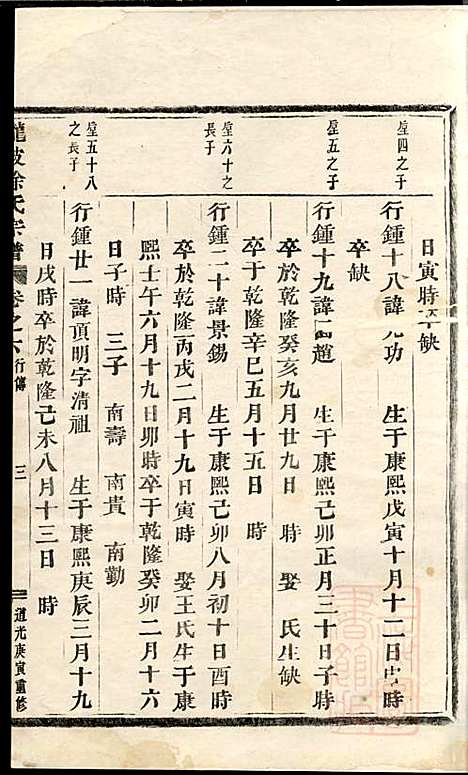 日寅時卒缺
星四之子
行鍾十八諱 九功 生于康熙戊寅十月十二日申時
卒缺
星五之子
行鍾十九諱 趙 生于康熙己卯正月三十日子時
卒於乾隆癸亥九月廿九日 時 娶 氏生缺
卒于乾隆辛巳五月十五日 時
星六十之
長子
行鍾二十諱景錫 生于康熙己卯八月初十日酉時
卒於乾隆丙戌二月十九日寅時 娶王氏生于康
熙壬午六月十九日卯時卒于乾隆癸卯二月十六
日子時 三子 南壽 南貴 南勤
星五十八
之長子
行鍾廿一諱頂明字清祖 生于康熙庚辰三月十九
日戌時卒於乾隆己未八月十三日 時
龍坡徐氏宗譜 卷之六 行傳 三 道光庚寅重修